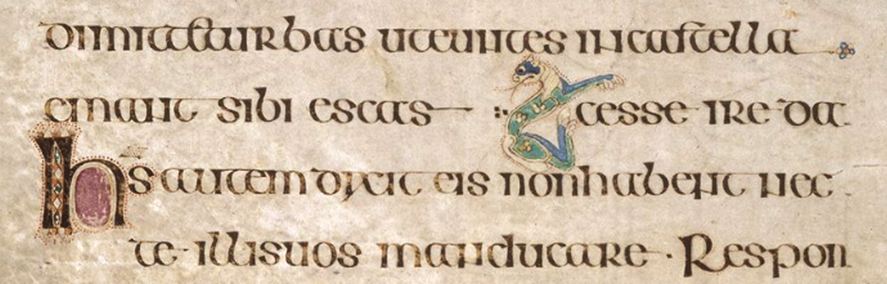 dimitte turbas uteuntes incastella
emant sibi escas cesse ire da
ihs autem dixit eis nonhabent nec
te illisuos manducare · Respon